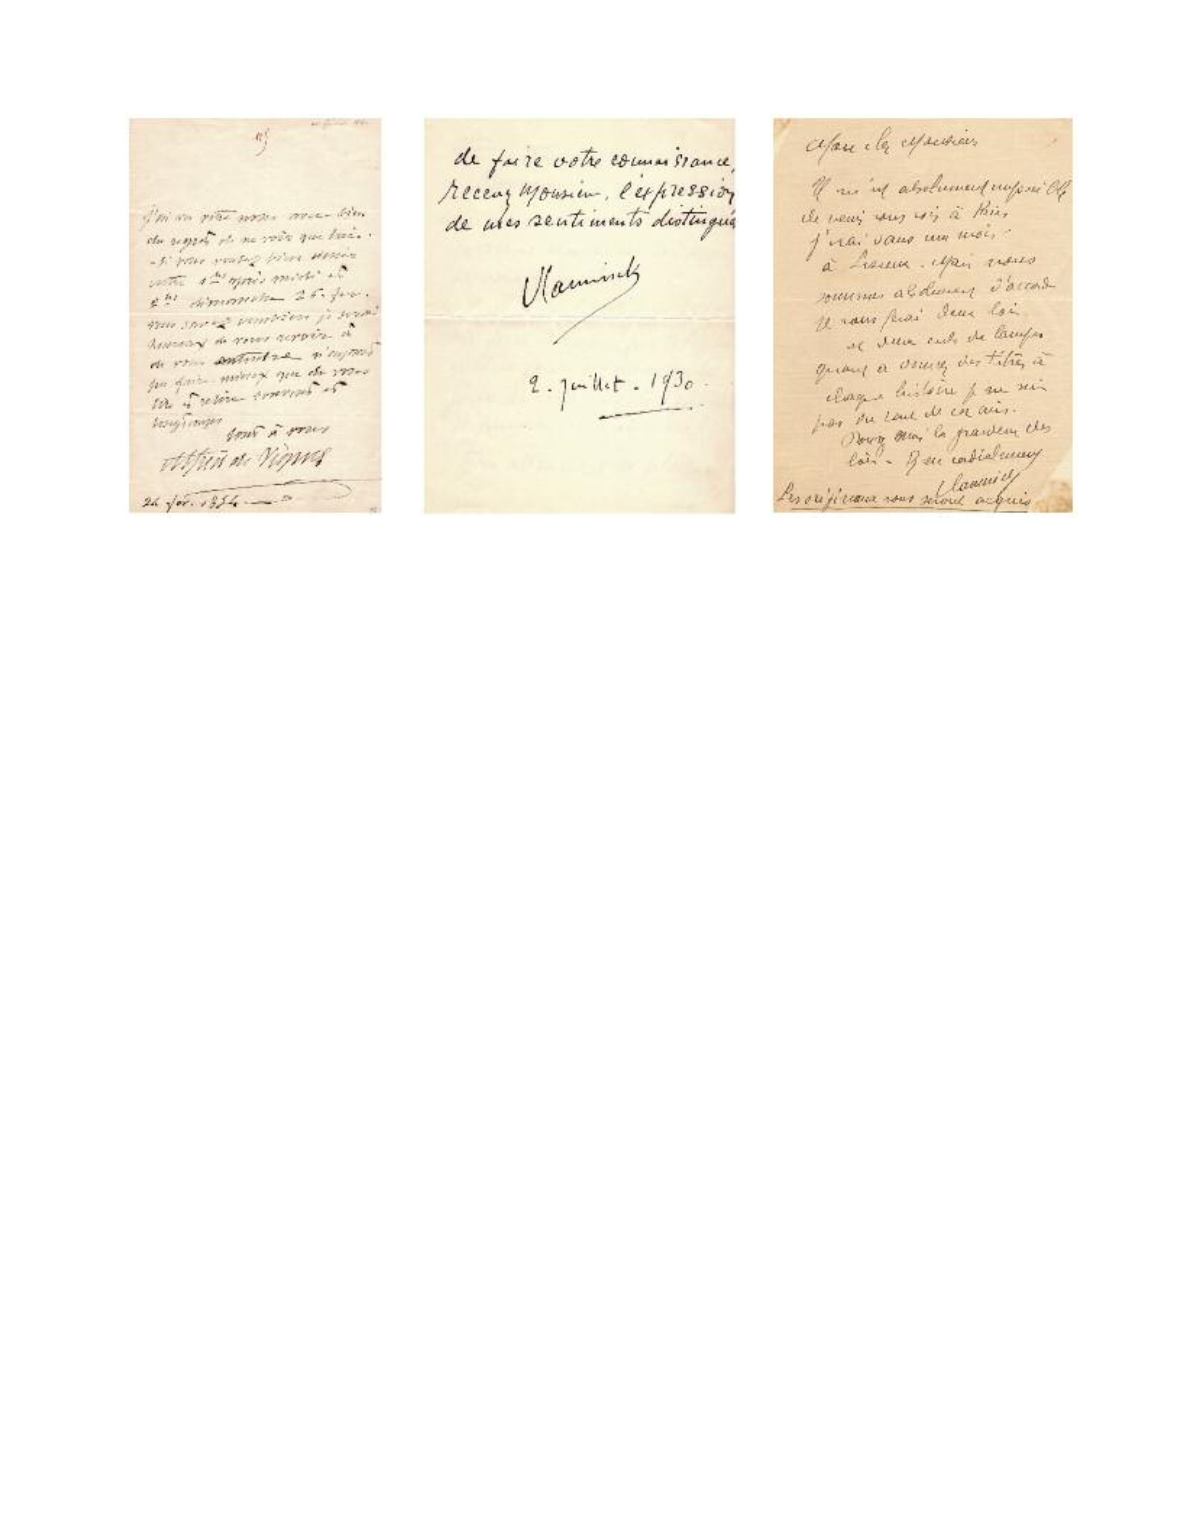 J'ai vu votre
du regret de ne voir que
si vous voulez bien venir
entre 1 h après midi et
dimanche 26. fév.
vous savez combien je serais
heureux de vous revoir
de vous entendre
faire mieux que de vous
lire et relire souvent et
longtemps
tout à vous
Alfred de Vigny
24 fév. 1854
de faire votre connaissance,
recevez Monsieur, l'expression
de mes sentiments distingués
Vlaminck
2. juillet. 1930.
Mon cher Monsieur
Il m'est absolument impossible
de venir vous voir à Paris
j'irai dans un mois
à Lisieux. Mais nous
sommes absolument d'accord
Je vous ferai deux bois
et deux culs de lampe
quant à donner des titres à
chaque histoire je ne suis
pas du tout de cet avis.
Donnez moi la grandeur des
bois. Bien cordialement
Vlaminck
Les originaux vous seront acquis